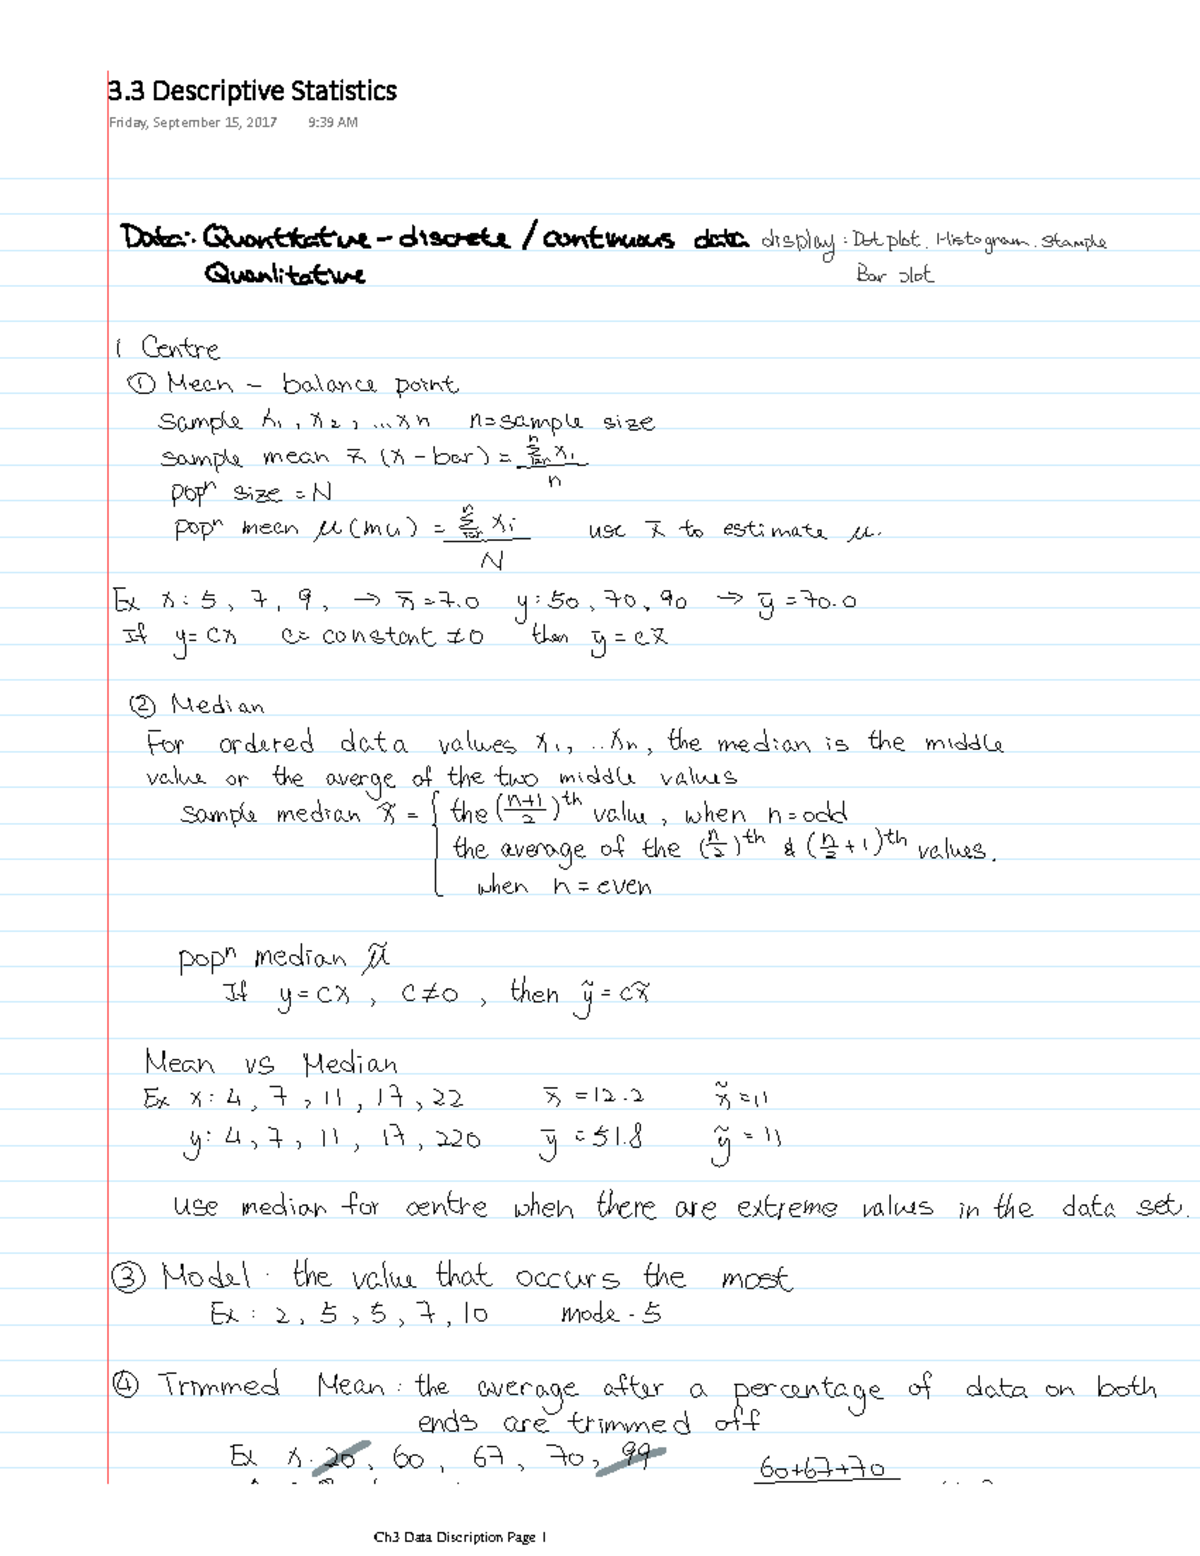 3.3 Descriptive Statistics
Friday, September 15, 2017 9:39 AM
Data: Quantitative – discrete / continuous data display: Dot plot. Histogram. Stample
Quanlitative Bar plot
1 Centre
① Mean – balance point
sample x₁, x₂, ...xn n=sample size
sample mean x̄ (x-bar) = Σxᵢ / n
popⁿ size = N
popⁿ mean μ(mu) = Σxᵢ / N use x̄ to estimate μ.
Ex x: 5, 7, 9, → x̄=7.0 y: 50, 70, 90 → ȳ=70.0
If y=cx c= constant ≠0 then ȳ=cx̄
② Median
For ordered data values x₁, ..xn, the median is the middle
value or the averge of the two middle values
sample median x̃ = { the ((n+1)/2)ᵗʰ value, when n=odd
the average of the (n/2)ᵗʰ & (n/2+1)ᵗʰ values.
when n=even
popⁿ median μ̃
If y=cx, c≠0, then ỹ=cx̃
Mean vs Median
Ex x: 4, 7, 11, 17, 22 x̄=12.2 x̃=11
y: 4, 7, 11, 17, 220 ȳ=51.8 ỹ=11
use median for centre when there are extreme values in the data set.
③ Model. the value that occurs the most
Ex: 2, 5, 5, 7, 10 mode - 5
④ Trimmed Mean: the average after a percentage of data on both
ends are trimmed off
Ex x. 20, 60, 67, 70, 99 60+67+70
Ch3 Data Discription Page 1